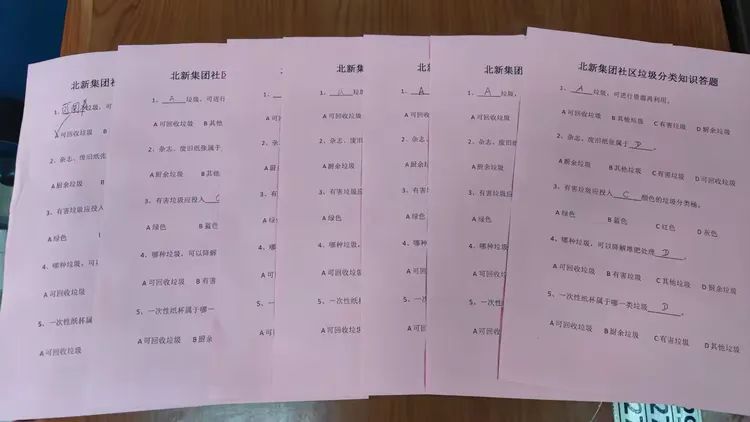 北新集团社
1、可回收垃圾，可
A可回收垃圾 B
2、杂志、废旧纸张
A厨余垃圾
3、有害垃圾应投
A绿色
4、哪种垃圾，可以
A可回收垃圾
5、一次性纸杯属
A可回收垃圾
北新集团社区
1、A垃圾，可进行
A可回收垃圾 B其他
2、杂志、废旧纸张属于
A厨余垃圾 B其他
3、有害垃圾应投入C
A绿色 B蓝色
4、哪种垃圾，可以降解
A可回收垃圾 B有害
5、一次性纸杯属于哪一
A可回收垃圾 B厨余
1、
A可
2、杂
A厨
3、有
A绿
4、哪
A可
5、一
A可
北新
1、垃
A可回收
2、杂志、废旧
A厨余垃
3、有害垃圾
A绿色
4、哪种垃圾
A可回收
5、一次性纸
A可回收
北
1、A
A可回
2、杂志
A厨余
3、有害
A绿色
4、哪种
A可回
5、一次
A可回
北新集
1、A垃圾
A可回收垃
2、杂志、废
A厨余垃圾
3、有害垃圾
A绿色
4、哪种垃圾
A可回收垃
5、一次性纸
A可回收垃
北新集团社区垃圾分类知识答题
1、A垃圾，可进行资源再利用。
A可回收垃圾 B其他垃圾 C有害垃圾 D厨余垃圾
2、杂志、废旧纸张属于D。
A厨余垃圾 B其他垃圾 C有害垃圾 D可回收垃圾
3、有害垃圾应投入C颜色的垃圾分类桶。
A绿色 B蓝色 C红色 D灰色
4、哪种垃圾，可以降解堆肥处理D。
A可回收垃圾 B有害垃圾 C其他垃圾 D厨余垃圾
5、一次性纸杯属于哪一类垃圾D。
A可回收垃圾 B厨余垃圾 C有害垃圾 D其他垃圾